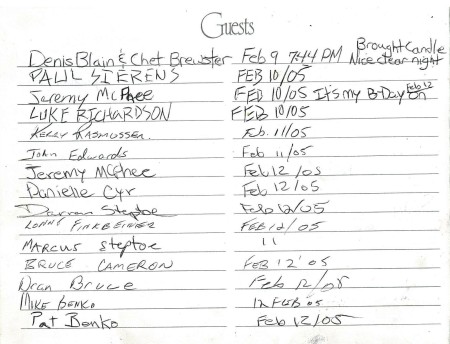 Guests
Denis Blain & Chet Brewster Feb 9 7:44 PM Brought Candle Nice clear night
PAUL SIERENS FEB 10/05
Jeremy McPhee FEB 10/05 It's my B-Day on Feb 12
LUKE RICHARDSON FEB 10/05
KERRY RASMUSSEN Feb. 11/05
John Edwards Feb 11/05
Jeremy McPhee Feb 12/05
Danielle Cyr Feb 12/05
Darran Steptoe Feb 12/05
LONNY FINKBEINER FEB 12/05
MARCUS Steptoe 11
BRUCE CAMERON FEB 12'05
Bruce Feb 12/05
MIKE BENKO 12 FEB '05
Pat Benko Feb 12/05